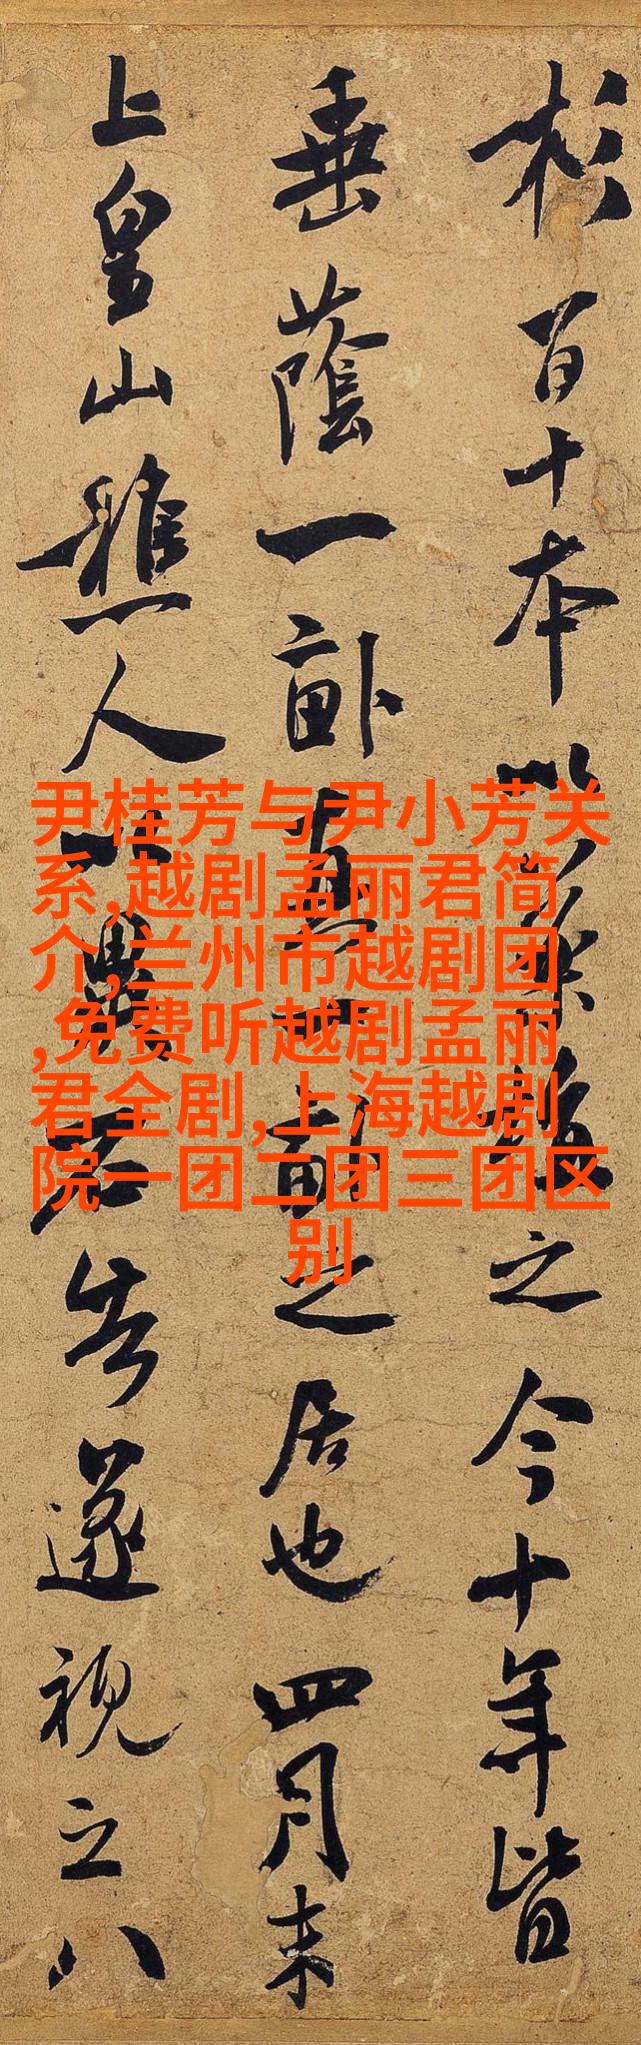 杉百十本以藥植之今十年皆
垂蔭一畝真一畝之居也四月末
上皇山樵人以異石告遂視之八
尹桂芳与尹小芳关
系,越剧孟丽君简
介,兰州市越剧团
,免费听越剧孟丽
君全剧,上海越剧
院一团二团三团区
别